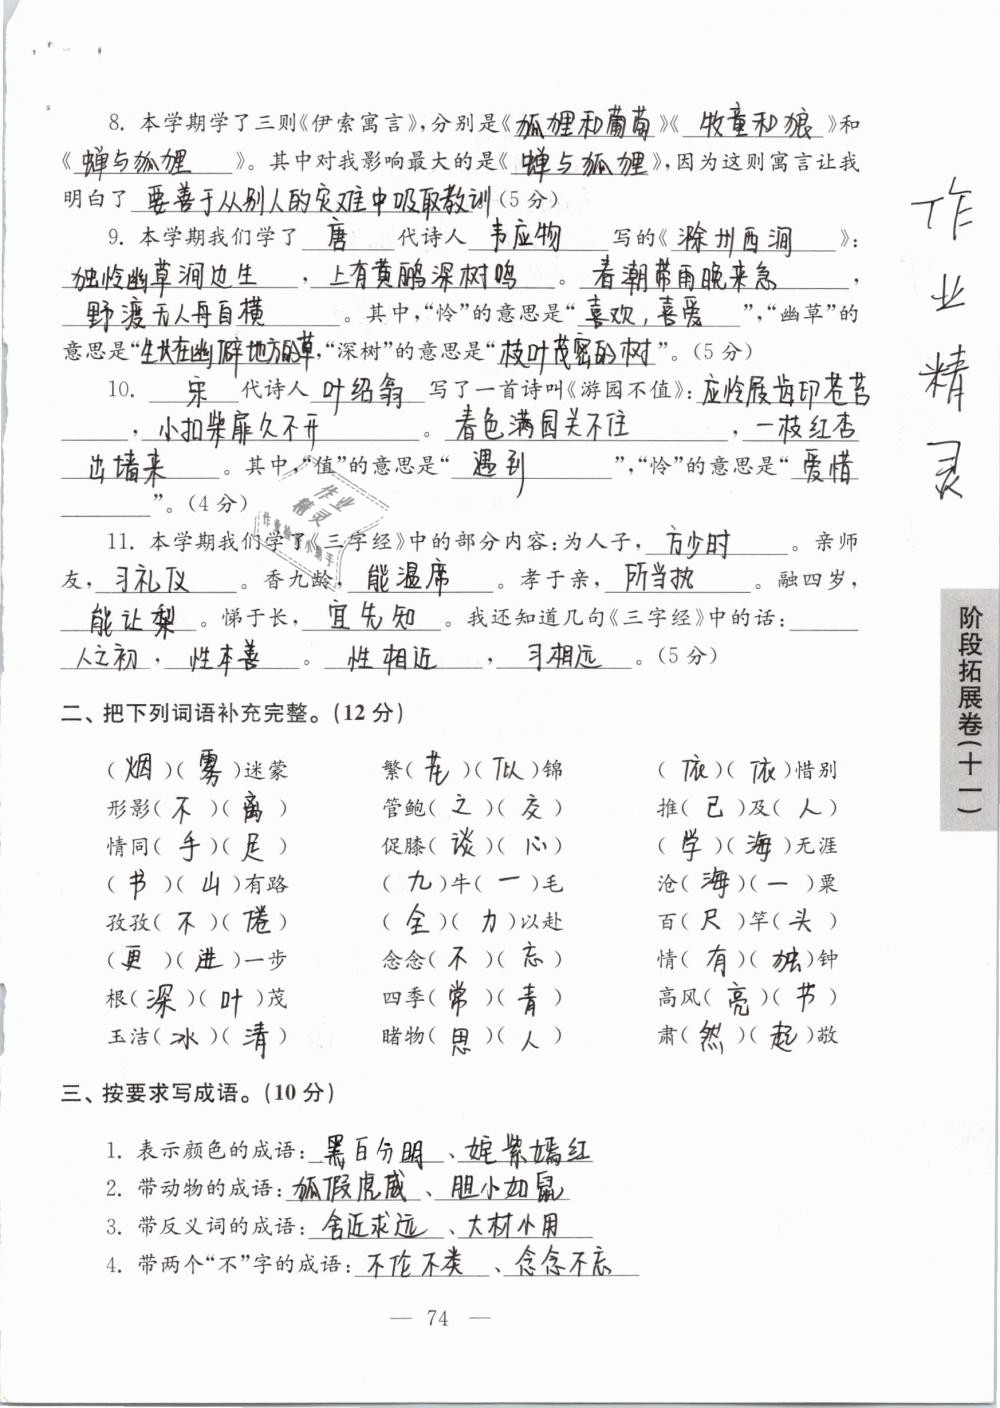 8. 本学期学了三则《伊索寓言》,分别是《狐狸和葡萄》《牧童和狼》和
《蝉与狐狸》。其中对我影响最大的是《蝉与狐狸》,因为这则寓言让我
明白了 要善于从别人的灾难中吸取教训(5分)
9. 本学期我们学了 唐 代诗人 韦应物 写的《滁州西涧》:
独怜幽草涧边生,上有黄鹂深树鸣。春潮带雨晚来急,
野渡无人舟自横。其中,“怜”的意思是“喜欢,喜爱”,“幽草”的
意思是“生长在幽僻地方的草,“深树”的意思是“枝叶茂密的树”。(5分)
10. 宋 代诗人 叶绍翁 写了一首诗叫《游园不值》:应怜屐齿印苍苔
,小扣柴扉久不开。春色满园关不住,一枝红杏
出墙来。其中,“值”的意思是“遇到”,“怜”的意思是“爱惜
”。(4分)
11. 本学期我们学了《三字经》中的部分内容:为人子,方少时。亲师
友,习礼仪。香九龄,能温席。孝于亲,所当执。融四岁,
能让梨。悌于长,宜先知。我还知道几句《三字经》中的话:
人之初,性本善。性相近,习相远。(5分)
二、把下列词语补充完整。(12分)
(烟)(雾)迷蒙 繁(花)(似)锦 (依)(依)惜别
形影(不)(离) 管鲍(之)(交) 推(己)及(人)
情同(手)(足) 促膝(谈)(心) (学)(海)无涯
(书)(山)有路 (九)牛(一)毛 沧(海)(一)粟
孜孜(不)(倦) (全)(力)以赴 百(尺)竿(头)
(更)(进)一步 念念(不)(忘) 情(有)(独)钟
根(深)(叶)茂 四季(常)(青) 高风(亮)(节)
玉洁(冰)(清) 睹物(思)(人) 肃(然)(起)敬
三、按要求写成语。(10分)
1. 表示颜色的成语:黑白分明、姹紫嫣红
2. 带动物的成语:狐假虎威、胆小如鼠
3. 带反义词的成语:舍近求远、大材小用
4. 带两个“不”字的成语:不伦不类、念念不忘
— 74 —
阶段拓展卷(十一)
作业精灵
作业
精灵